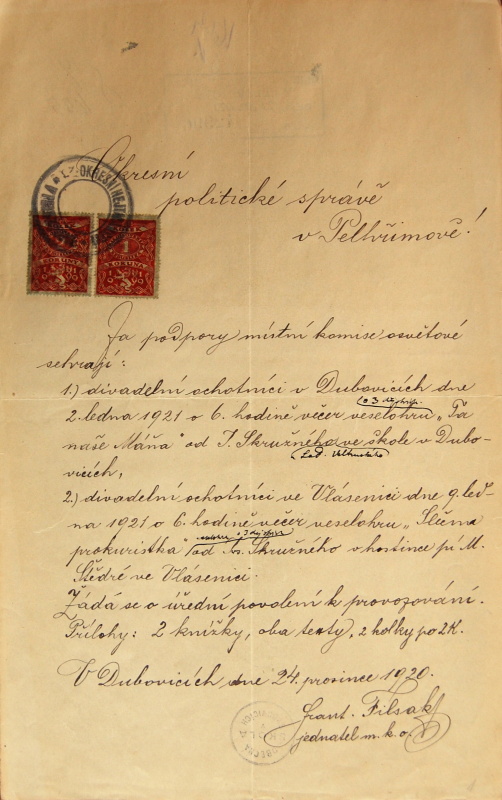 Okresní
politické správě
v Pelhřimově!
Za podpory místní komise osvětové
sehrají:
1.) divadelní ochotníci v Dubovicích dne
o 3 dějstv.
2. ledna 1921 o 6. hodině večer veselohru „Ta
naše Máňa" od J. Skružného ve škole v Dubo-
vicích,
2.) divadelní ochotníci ve Vlásenici dne 9. led-
na 1921 o 6. hodině večer veselohru „Slečna
o 3 dějstv.
prokuristka" od Jos. Skružného v hostinci pí M.
Štědré ve Vlásenici.
Žádá se o úřední povolení k provozování.
Přílohy: 2 knížky, oba texty, 2 kolky po 2K.
V Dubovicích dne 24. prosince 1920.
Frant. Filsak
jednatel m. k. o.
OKRESNÍ
1
KORUNA